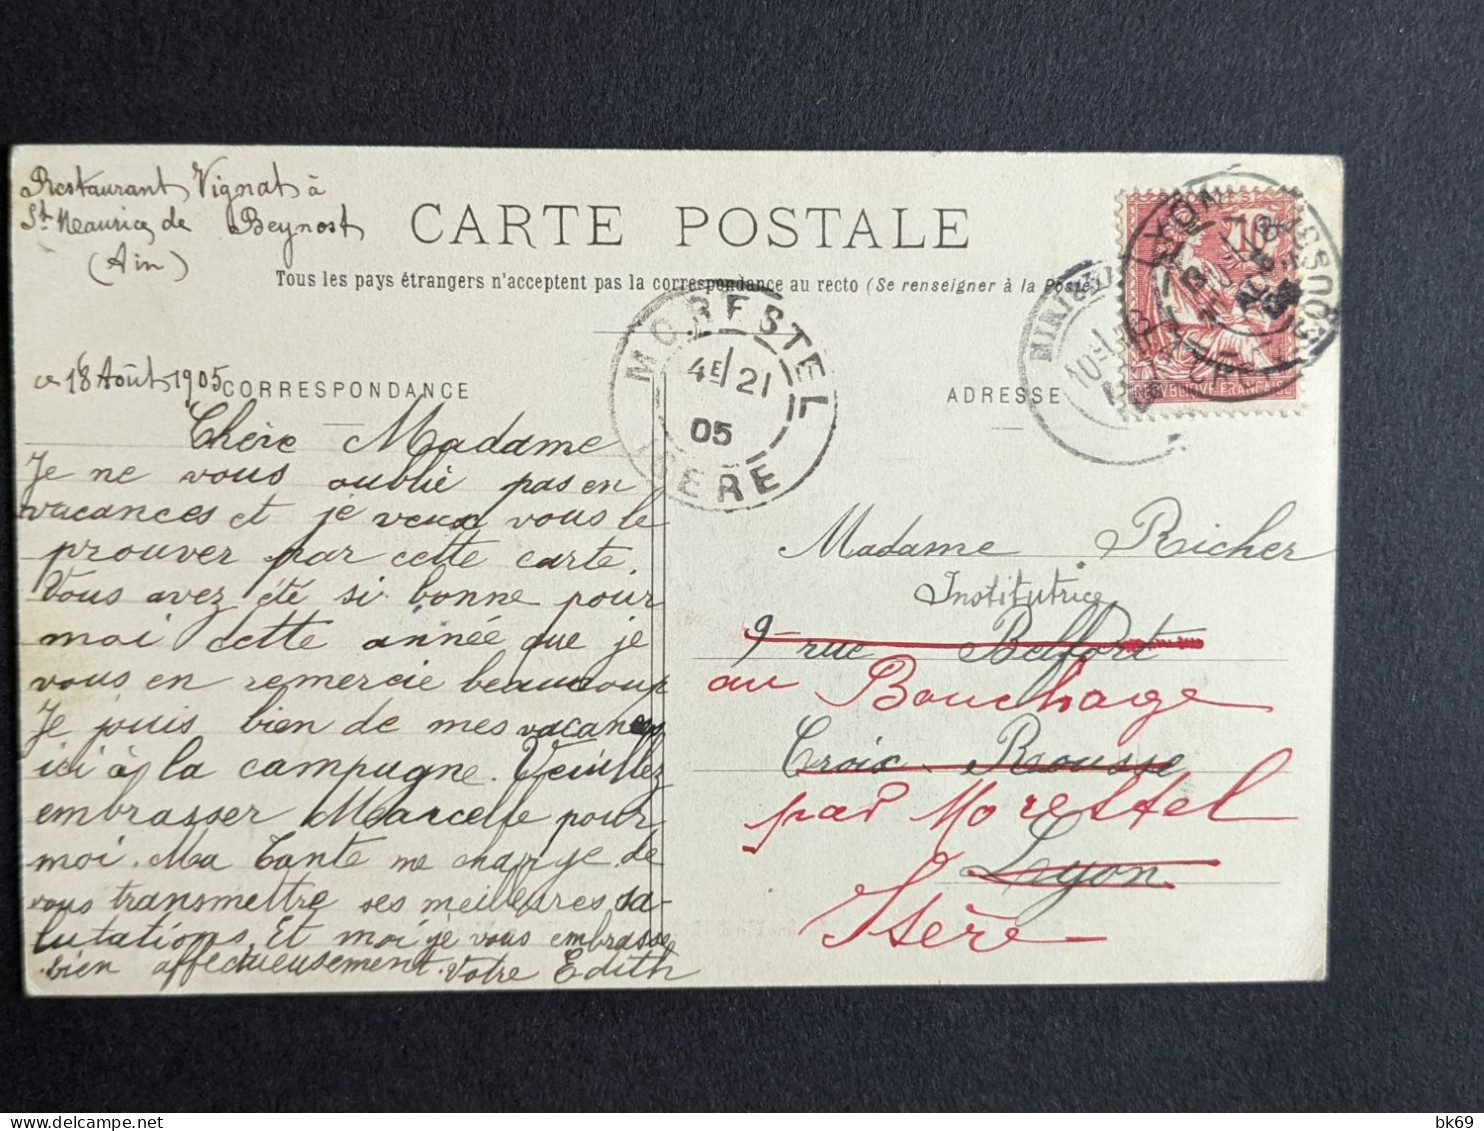 Restaurant Vignat à
St Maurice de Beynost
(Ain)
CARTE POSTALE
Tous les pays étrangers n'acceptent pas la correspondance au recto (Se renseigner à la Poste
ce 18 Août 1905
CORRESPONDANCE
ADRESSE
MORESTEL
4E/21
05
ISERE
LYON
10
REPUBLIQUE FRANÇAISE
Chère Madame
Je ne vous oublie pas en
vacances et je veux vous le
prouver par cette carte.
Vous avez été si bonne pour
moi cette année que je
vous en remercie beaucoup
Je jouis bien de mes vacances
ici à la campagne. Veuillez
embrasser Marcelle pour
moi. Ma Tante me charge de
vous transmettre ses meilleures sa-
lutations. Et moi je vous embrasse
bien affectueusement. Votre Edith
Madame Richer
Institutrice
9 rue Belfort
au Bouchage
Croix-Rousse
par Morestel
Lyon
Isère
bk69